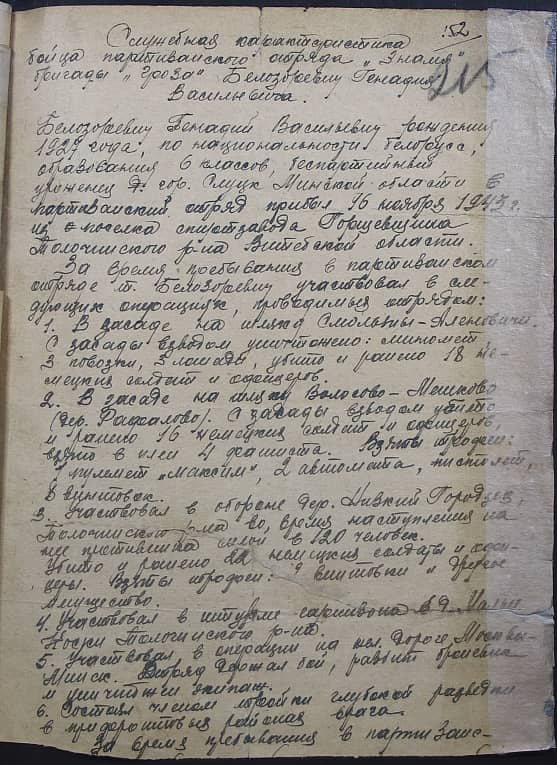 152
215
Служебная характеристика
бойца партизанского отряда „Знамя"
бригады „Гроза" Белозоревич Генадия
Васильевича.
Белозоревич Генадий Васильевич рождения
1927 года, по национальности белорусс,
образования 6 классов, беспартийный
уроженец гор. Слуцк Минской области в
партизанский отряд прибыл 16 ноября 1943 г.
из поселка спиртзавода
Толочинского р-на Витебской области.
За время пребывания в партизанском
отряде т. Белозоревич участвовал в сле-
дующих операциях, проводимых отрядом:
1. В засаде на шляху
С засады взводом уничтожено: миномет,
3 повозки, 3 лошади, убито и ранено 18 не-
мецких солдат и офицеров.
2. В засаде на шляху Волосово-
(дер. Рафалово). С засады взводом убито
и ранено 16 немецких солдат и офицеров,
взято в плен 4 фашиста. Взяты трофеи:
1 пулемет „Максим", 2 автомата, пистолет,
8 винтовок.
3. Участвовал в обороне дер. Низкий Городец,
Толочинского р-на во время наступления на
нее противника силой в 120 человек.
Убито и ранено 22 немецких солдаты и офи-
церы. Взяты трофеи: 9 винтовки и другое
имущество.
4. Участвовал в штурме гарнизона в д. Малые
Толочинского р-на.
5. Участвовал в операции на жел. дороге Москва-
Минск. Отряд держал бой,
и уничтожен экипаж.
6. Состоял членом глубокой разведки
в районах врага.
За время пребывания в партизанс-